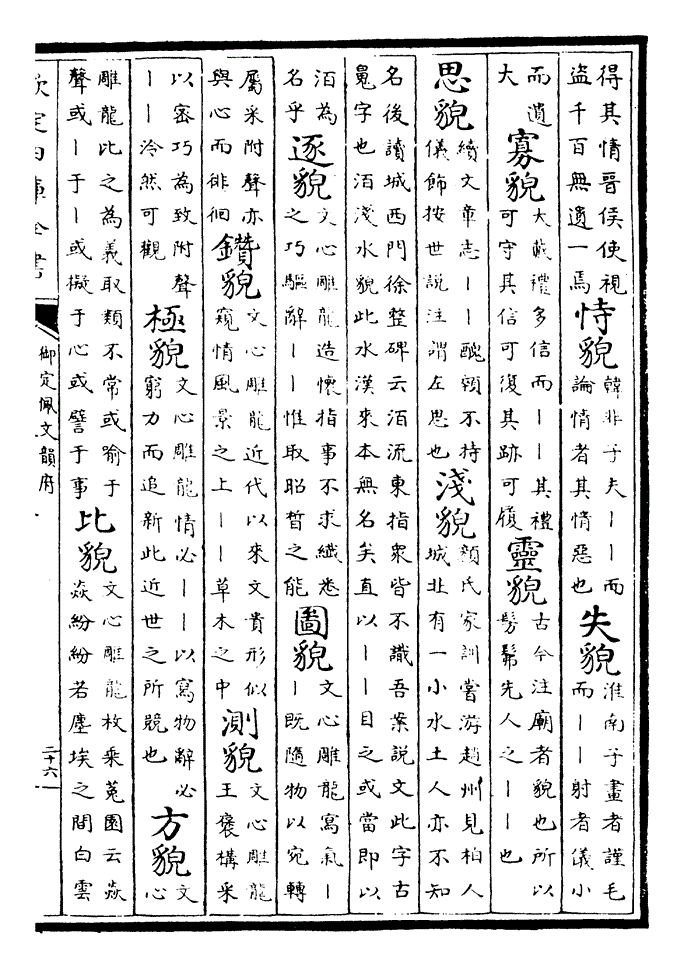 得其情晉侯使視盜千百無遺一焉恃貌韓非子夫｜｜而論情者其情惡也失貌淮南子畫者謹毛而｜｜射者儀小
而遺大寡貌大戴禮多信而｜｜其禮可守其信可復其跡可履靈貌古今注廟者貌也所以髣髴先人之｜｜也
思貌續文章志｜｜醜顇不持儀飾按世說注謂左思也淺貌顏氏家訓嘗游趙州見柏人城北有一小水土人亦不知
名後讀城西門徐整碑云洦流東指衆皆不識吾案說文此字古字也洦淺水貌此水漢來本無名矣直以｜｜目之或當即以
洦為名乎逐貌文心雕龍造懷指事不求纖密之巧驅辭｜｜惟取昭晳之能圖貌文心雕龍寫氣｜｜既隨物以宛轉
屬采附聲亦與心而徘徊鑽貌文心雕龍近代以來文貴形似窺情風景之上｜｜草木之中測貌文心雕龍王褒構采
以密巧為致附聲｜｜泠然可觀極貌文心雕龍情必｜｜以寫物辭必窮力而追新此近世之所競也方貌文心
雕龍比之為義取類不常或喻于聲或｜于｜或擬于心或譬于事比貌文心雕龍枚乘菟園云焱焱紛紛若塵埃之間白雲
欽定四庫全書
御定佩文韻府
二十六